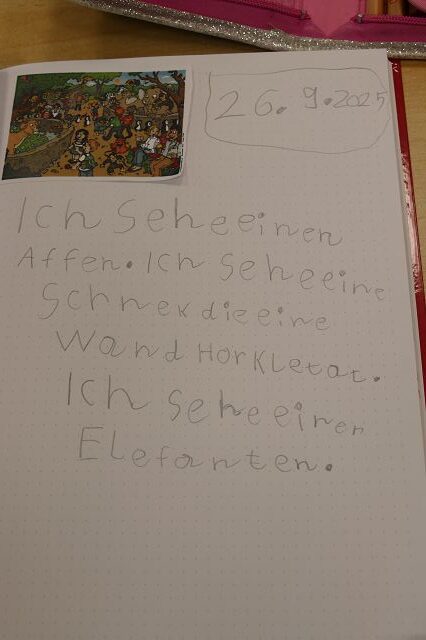 26.9.2025
Ich seheeinen
Affen. Ich seheeine
Schnek dieeine
Wand Horkletat.
Ich seheeinen
Elefanten.